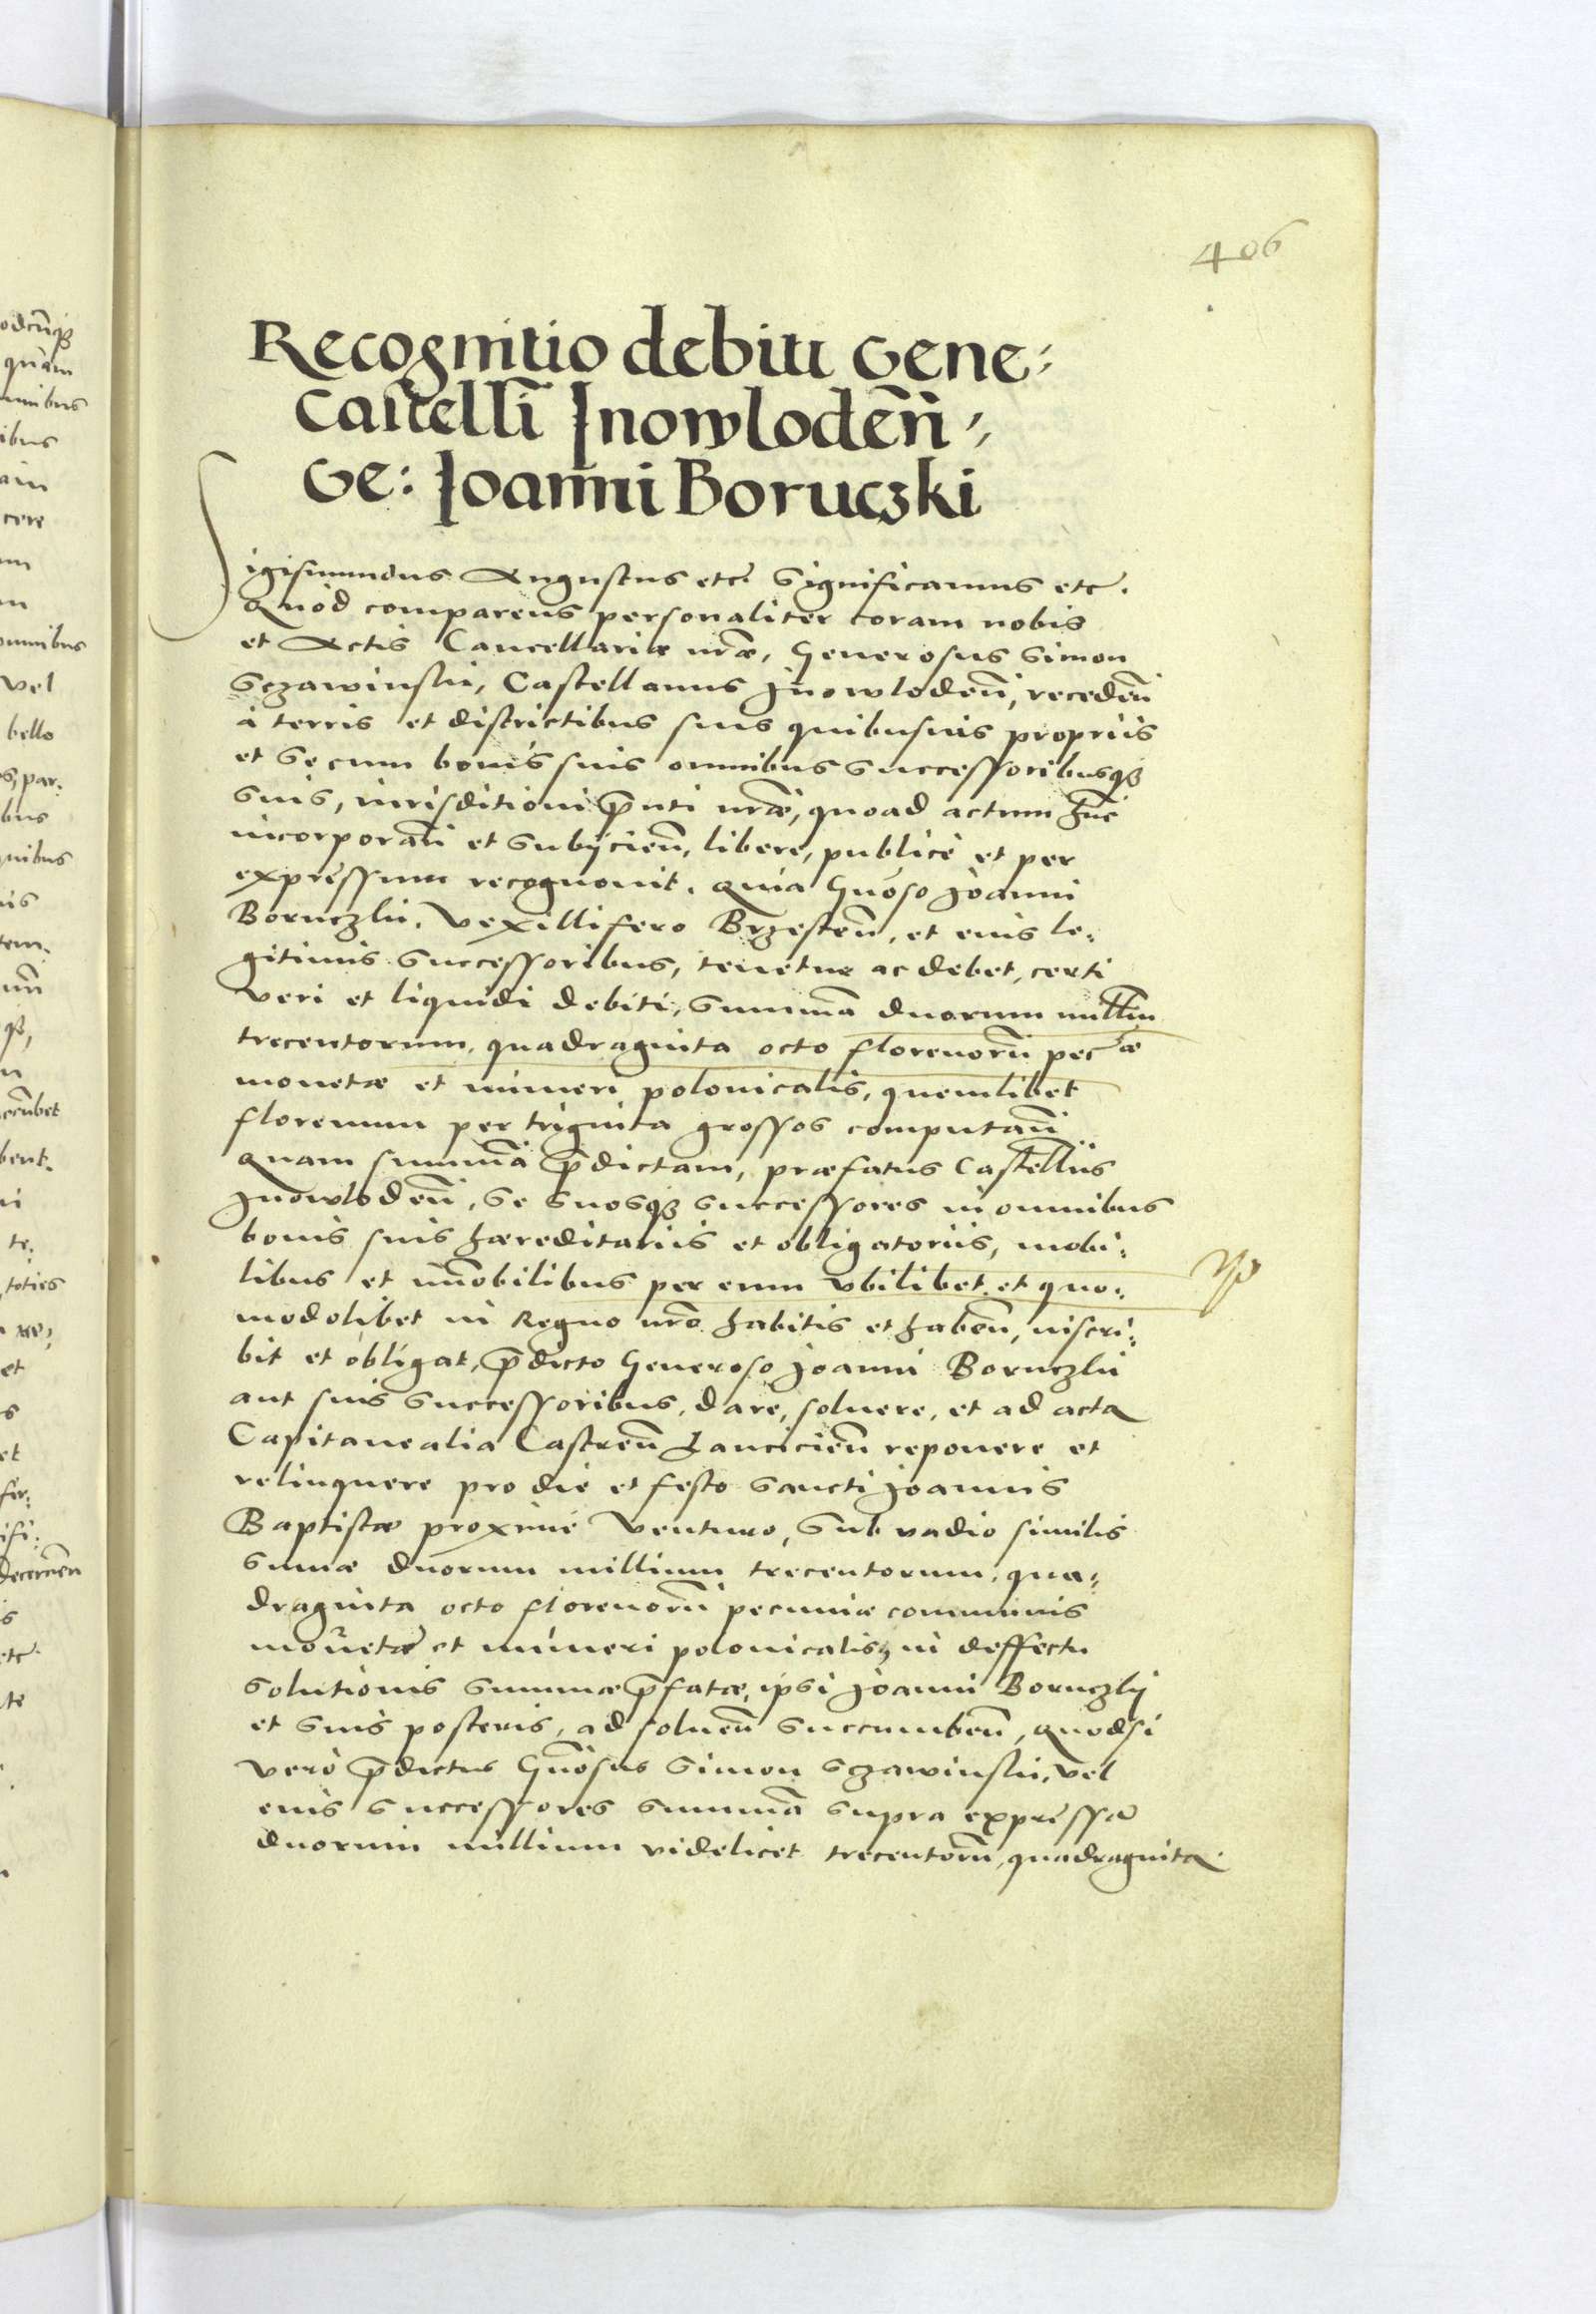 406
Recognitio debiti Gene:
Castelli Inowlodeñ:
Ge: Joanni Boruczki
Sigismundus Augustus etc. Significamus etc.
Quod comparens personaliter coram nobis
et Actis Cancellariæ nr̃æ, Generosus Simon
Sczawinski, Castellanus Jnowlodeñ, recedeñ
à terris et districtibus suis quibusuis propriis
et se cum bonis suis omnibus Successoribusqȝ
suis, iurisditioni p̃nti nr̃æ, quoad actum hũc
incorporañ et Subijcieñ, libere, publicè et per
expressum recognouit. Quia Gñoso Joanni
Boruczki, Vexillifero Brzesteñ, et eius le:
gitimis Successoribus, tenetur ac debet, certi
veri et liquidi debiti, Summã duorum milliu͂
trecentorum, quadraginta octo florenorũ pecæ
monetæ et numeri polonicalis, quemlibet
florenum per triginta grossos computañ
Quam summã p̃dictam, præfatus Castell̃us
Jnowlodeñ, Se Suosqȝ Successores in omnibus
bonis suis hæreditariis et obligatoriis, mobi:
libus et im̃obilibus per eum vbilibet et quo:
modolibet in Regno nr̃o habitis et habeñ, inscri:
bit et obligat, p̃dicto Generoso Joanni Boruczki
aut suis Successoribus, dare, soluere, et ad acta
Capitanealia Castreñ Lancicieñ reponere et
relinquere pro die et festo Sancti Joannis
Baptistæ proximè Venturo, Sub vadio similis
Sum̃æ duorum millium trecentorum, qua:
draginta octo florenorũ pecuniæ communis
monetæ et numeri polonicalis, in deffectu
Solutionis Summæ p̃fatæ, ipsi Joanni Boruczkij
et Suis posteris, ad solueñ Succumbeñ, quodsi
Vero p̃dictus Gñosus Simon Sczawinski, Vel
eius Successores Summã Supra expressã
duorum millium videlicet trecentorũ, quadraginta